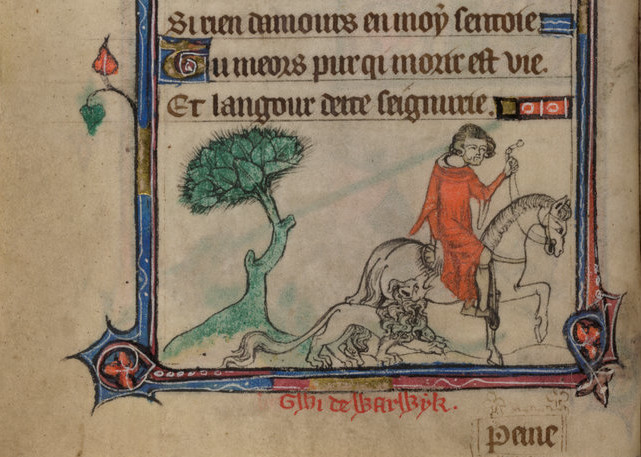 Si rien damours en moy sentoie
Tu meors pur qi morir est vie.
Et langour dette seignurie.
Gwi de Warwyk.
peine